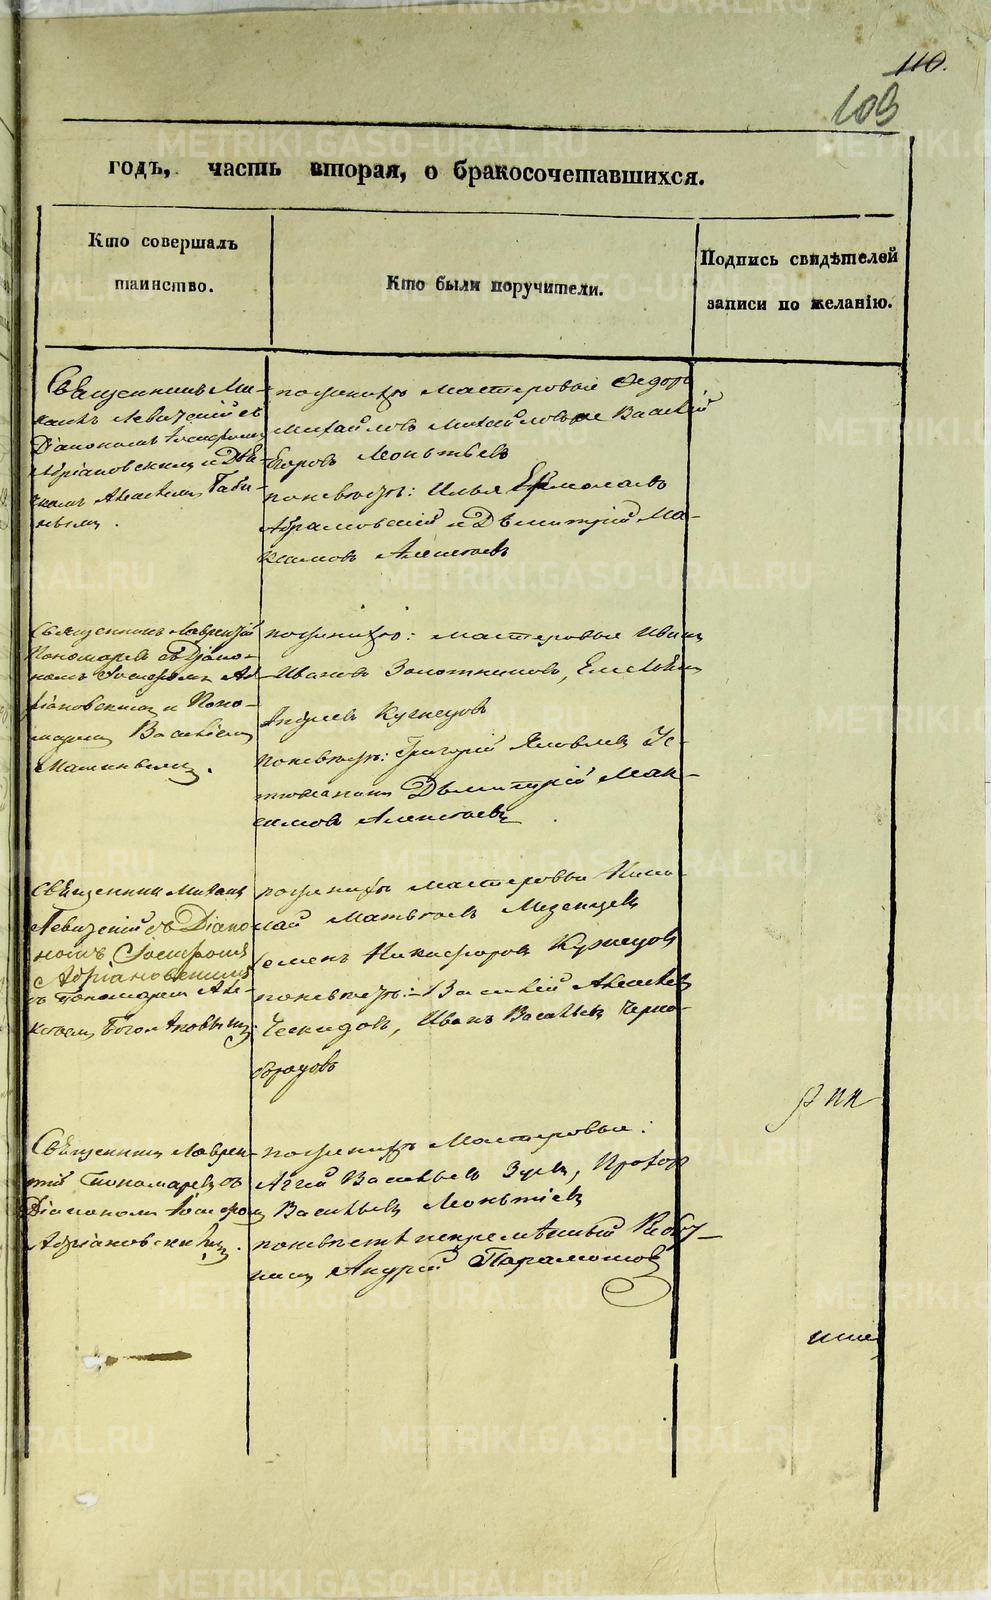 110.
103
годъ, часть вторая, о бракосочетавшихся.
Кто совершалъ
таинство.
Кто были поручители.
Подпись свидѣтелей
записи по желанію.
Священникъ Ми-
хаилъ Левицкій съ
Діакономъ Іосифомъ
Адріановскимъ и Дья-
чкомъ Алексѣем
по женихѣ мастеровые Ѳедоръ
Михайловъ Михайловъ Василій
Егоровъ Леонтьевъ
по невѣстѣ: Илья Ермолаевъ
Абрамовскій и Дьмитрій Ма-
ксимовъ Алексѣевъ
Священникъ Лаврентій
Пономаревъ съ Діако-
номъ Іосифомъ Ад-
ріановскимъ и Поно-
маремъ Василіемъ
по женихѣ: мастеровые Иванъ
Ивановъ Золотниковъ, Емельянъ
Андреевъ Кузнецовъ
по невѣстѣ: Григорій Яковлевъ Ус-
Дьмитрій Мак-
симовъ Алексѣевъ
Священникъ Михаилъ
Левицкій съ Діако-
номъ Іосифомъ
Адріановскимъ
съ Пономаремъ Але-
ксѣемъ Богомоловымъ
по женихѣ мастеровые Нико-
лай Матвѣевъ Мезенцевъ
Семенъ Никифоровъ Кузнецовъ
по невѣстѣ: Василій Алексѣевъ
Ческидовъ, Иванъ Васильевъ Черно-
бровдовъ
Священникъ Лаврен-
тій Пономаревъ съ
Діакономъ Іосифомъ
Адріановскимъ.
по женихѣ Мастеровые:
Агѣй Васильевъ Зуевъ, Прохоръ
Васильевъ Леонтіевъ
по невѣстѣ непремѣнный Рабо-
Андрей Парамоновъ
METRIKI.GASO-URAL.RU